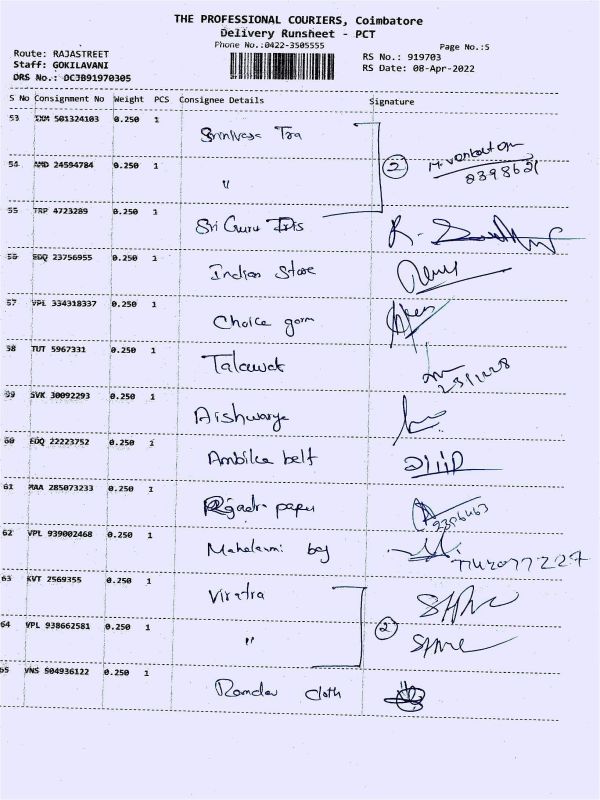 THE PROFESSIONAL COURIERS, Coimbatore
Delivery Runsheet - PCT
Phone No.:0422-3505555
Page No.:5
Route: RAJASTREET
RS No.: 919703
Staff: GOKILAVANI
RS Date: 08-Apr-2022
DRS No.: DCJB91970305
S No Consignment No Weight PCS Consignee Details Signature
53 IXM 501324103 0.250 1 Srinivasa Tra
54 AMD 24594784 0.250 1 " 2
55 TRP 4723289 0.250 1 Sri Guru
56 EDQ 23756955 0.250 1 Indian Store
57 VPL 334318337 0.250 1 Choice garm
58 TUT 5967331 0.250 1
59 SVK 30092293 0.250 1 Aishwarya
60 EDQ 22223752 0.250 1 Ambika belt
61 MAA 285073233 0.250 1
62 VPL 939002468 0.250 1 Mahalaxmi bag
63 KVT 2569355 0.250 1 Viratra
64 VPL 938662581 0.250 1 " 2
65 VNS 504936122 0.250 1 Ramdev cloth